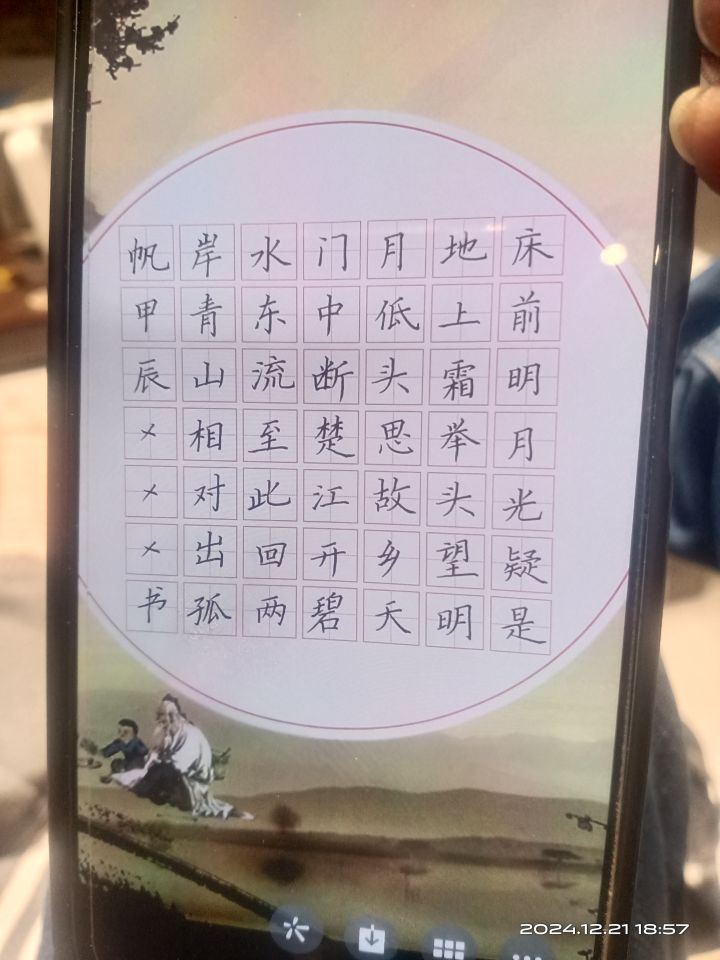 床前明月光疑是
地上霜举头望明
月低头思故乡天
门中断楚江开碧
水东流至此回两
岸青山相对出孤
帆甲辰×××书
2024.12.21 18:57